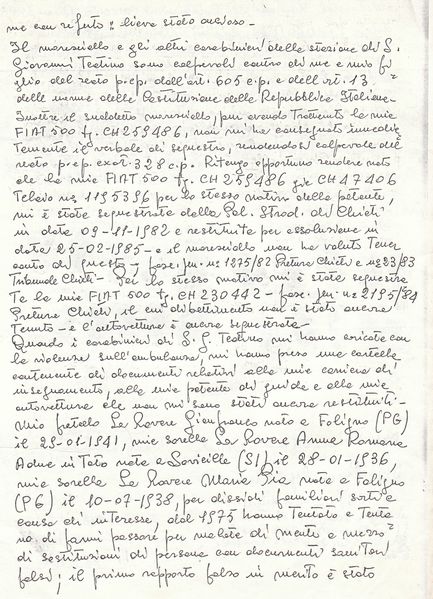 me con referto: lieve stato ansioso -
Il maresciallo e gli altri carabinieri della stazione di S.
Giovanni Teatino sono colpevoli contro di me e mio fi-
glio del reato p.e p. dall'art. 605 c.p. e dell'art. 13
delle norme della Costituzione della Repubblica Italiana -
Inoltre il suddetto maresciallo, pur avendo trattenuto la mia
FIAT 500 tg. CH 259486, non mi ha consegnato immedia-
tamente il verbale di sequestro, rendendosi colpevole del
reato p. e p. ex art. 328 c.p. Ritengo opportuno rendere noto
che la mia FIAT 500 tg. CH 259486 già CH 47406
Telaio nº 1195396 per lo stesso motivo della patente,
mi è stata sequestrata dalla Pol. Strad. di Chieti
in data 09-11-1982 e restituita per assoluzione in
data 25-02-1985 - e il maresciallo non ha voluto tener
conto di questo - fasc. pen. nº 1275/82 Pretura Chieti e nº 23/83
Tribunale Chieti - Per lo stesso motivo mi è stata sequestra-
ta la mia FIAT 500 tg. CH 230442 - fasc. pen. nº 2195/84
Pretura Chieti, il cui dibattimento non è stato ancora
tenuto - e l'autovettura è ancora sequestrata -
Quando i carabinieri di S. G. Teatino mi hanno caricato con
la violenza sull'ambulanza, mi hanno preso una cartella
contenente dei documenti relativi alla mia carriera di
insegnamento, alla mia patente di guida e alla mia
autovettura che non mi sono stati ancora restituiti -
Mio fratello La Rovere Gianfranco nato a Foligno (PG)
il 29-01-1941, mia sorella La Rovere Anna Romana
Adua in Toto nata a Sovicille (SI) il 28-01-1936,
mia sorella La Rovere Maria Pia nata a Foligno
(PG) il 10-07-1938, per dissidi familiari sorti a
causa di interesse, dal 1975 hanno tentato e tenta-
no di farmi passare per malato di mente a mezzo
di sostituzioni di persona con documenti sanitari
falsi; il primo rapporto falso in merito è stato